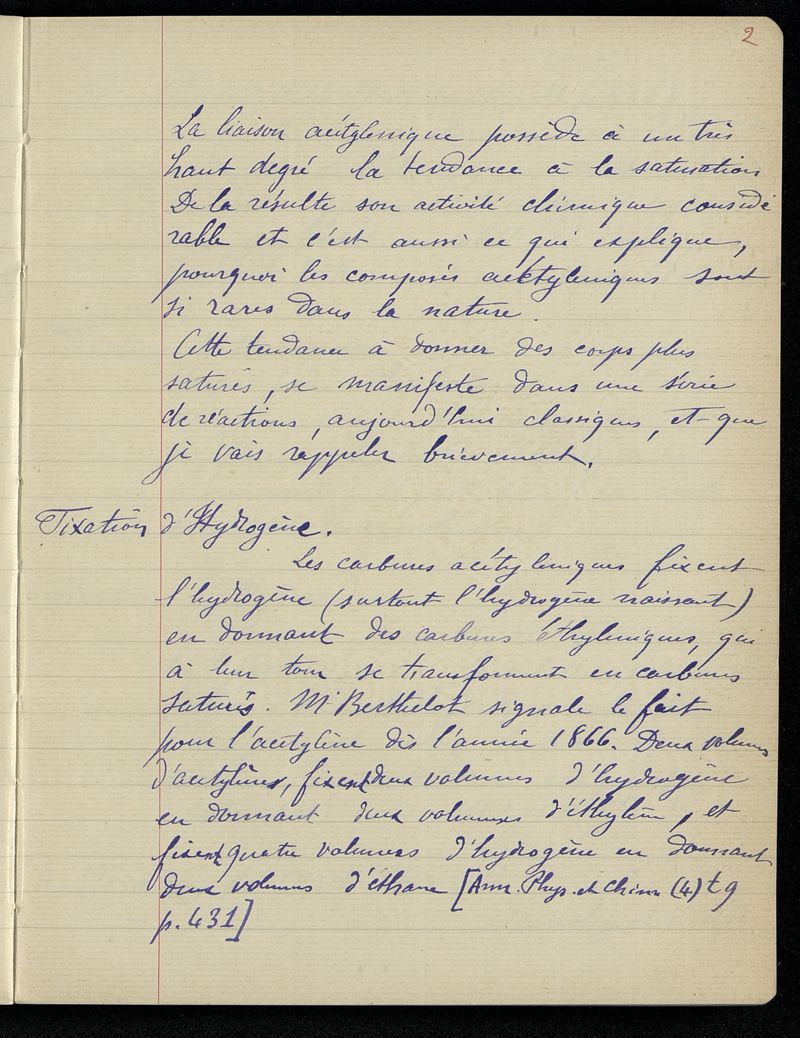 2
La liaison acétylenique possède à un très
haut degré la tendance à la saturation
De la résulte son activité chimique considé
rable et c'est aussi ce qui explique,
pourquoi les composés acétyleniques sont
si rares dans la nature.
Cette tendance à donner des corps plus
saturés, se manifeste dans une série
de réactions, aujourd'hui classiques, et que
je vais rappeler brievement.
Fixation d'Hydrogène.
Les carbures acétyleniques fixent
l'hydrogène (surtout l'hydrogène naissant)
en donnant des carbures éthyleniques, qui
à leur tour se transforment en carbures
saturés. Mr Berthelot signale le fait
pour l'acetylène dès l'année 1866. Deux volumes
d'acetylène, fixent deux volumes d'hydrogène
en donnant deux volumes d'éthylène, et
fixent quatre volumes d'hydrogène en donnant
deux volumes d'éthane [Ann. Phys. et Chim (4) t 9
p. 431]